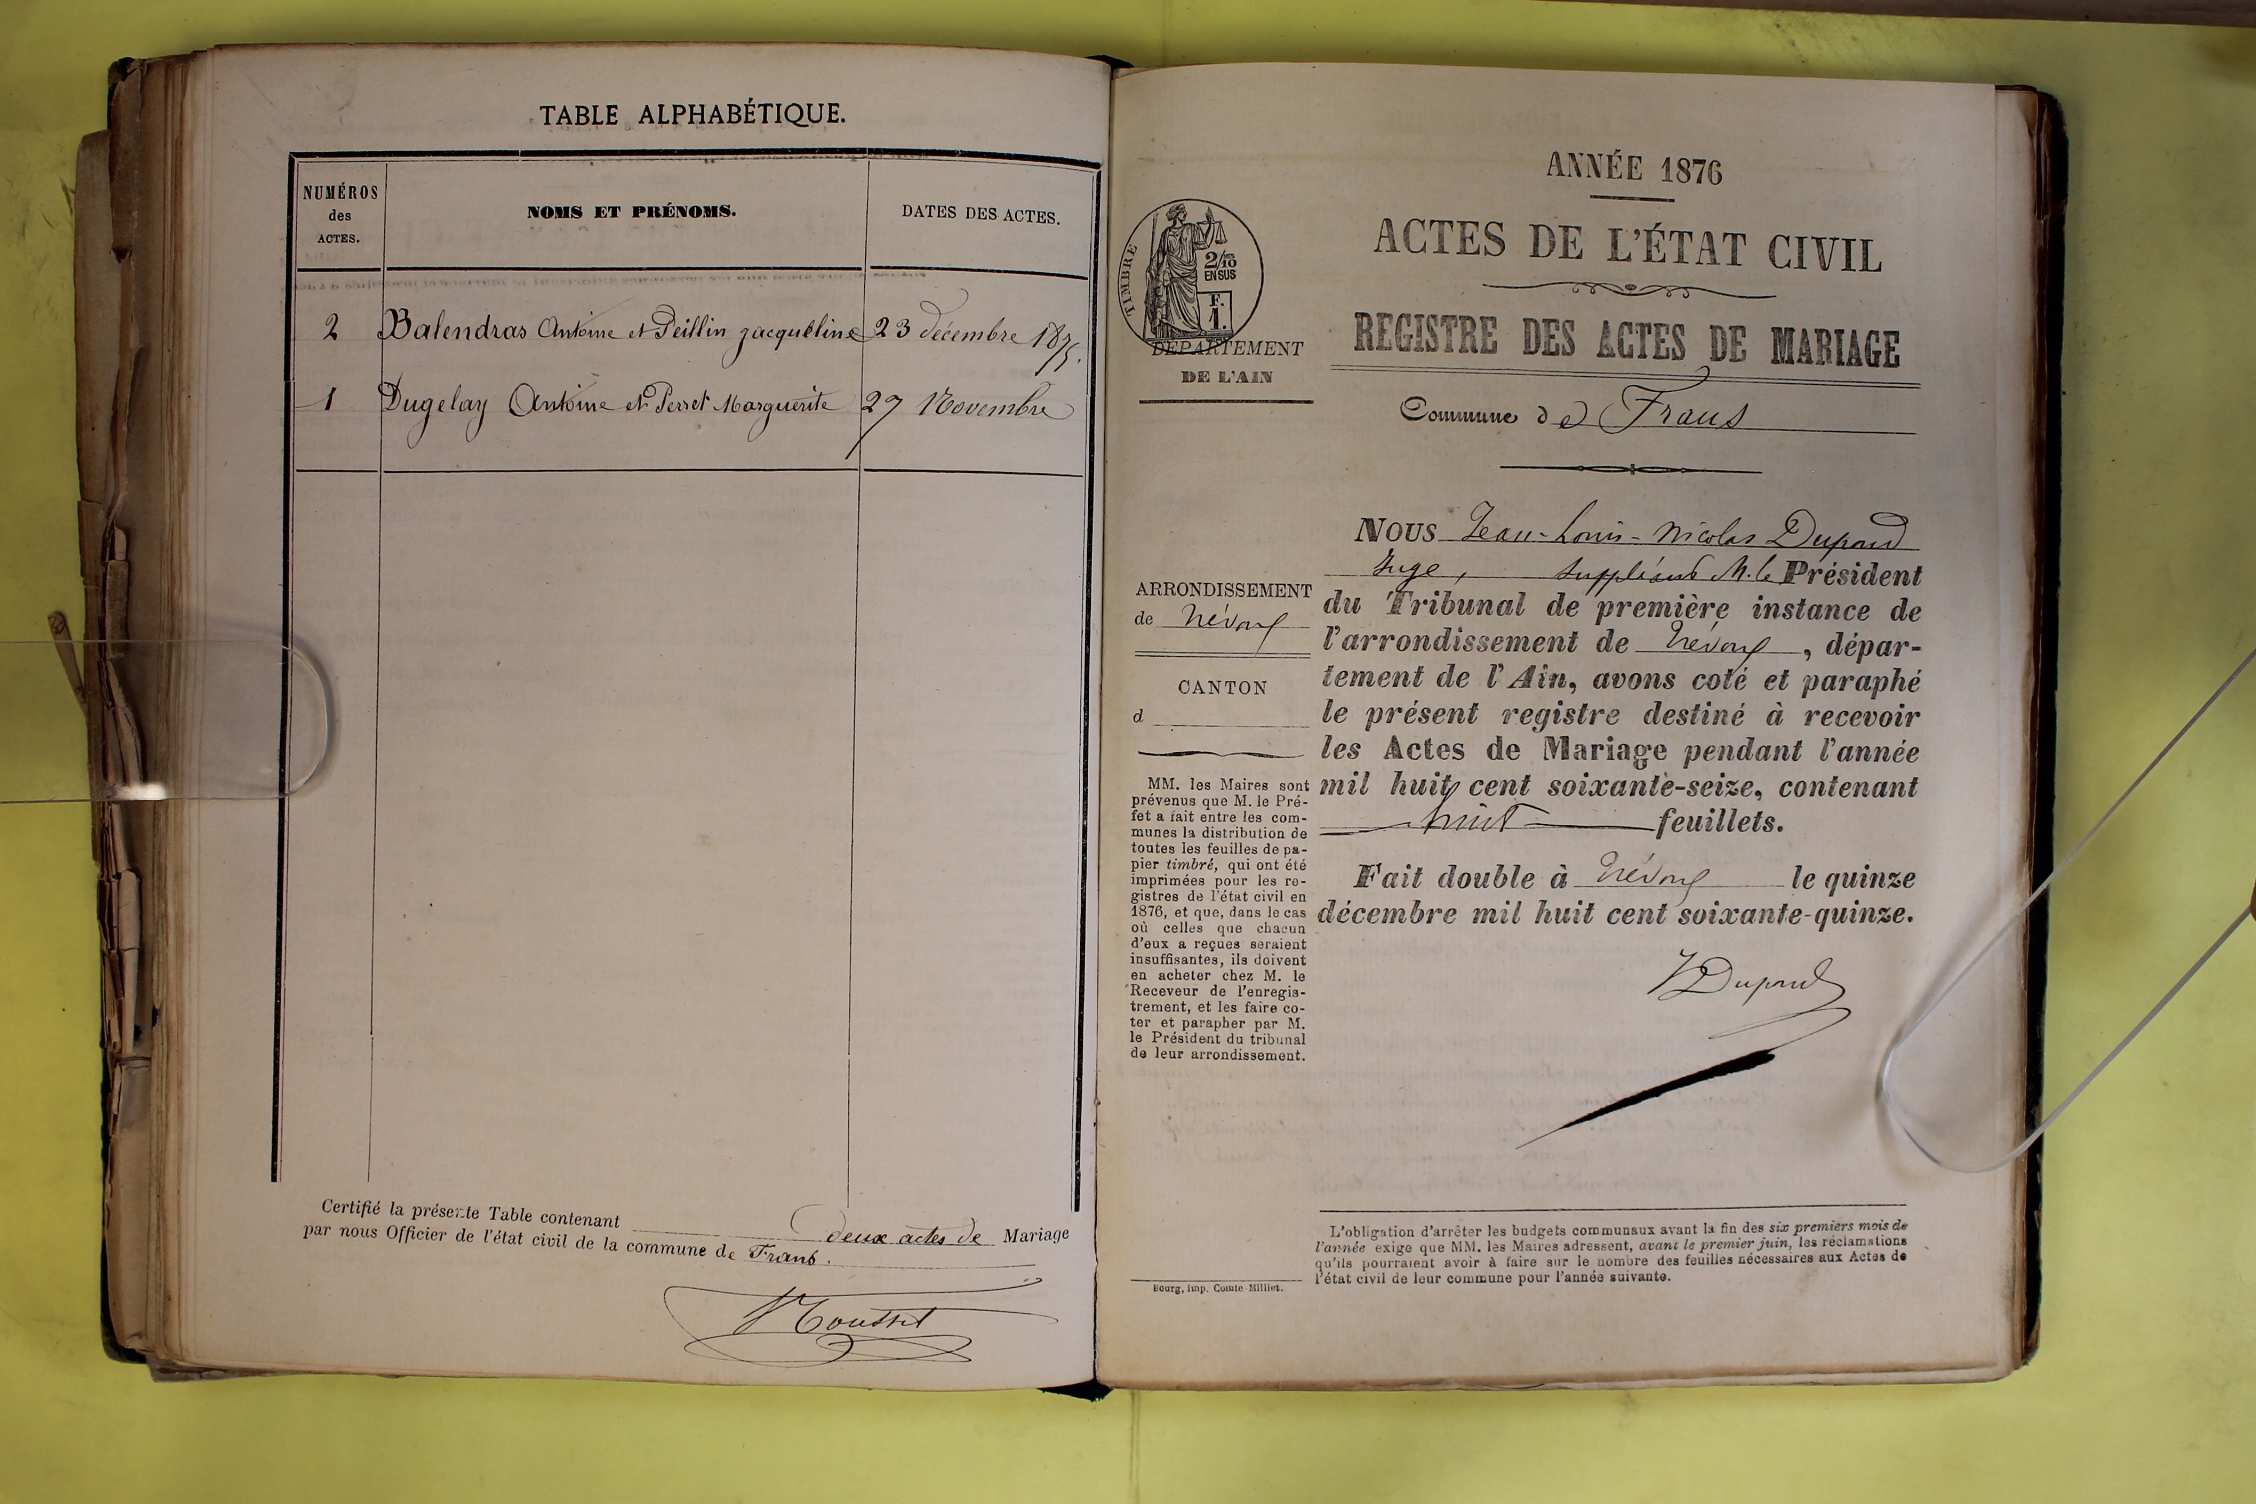 TABLE ALPHABÉTIQUE.
NUMÉROS
des
ACTES.
NOMS ET PRÉNOMS.
DATES DES ACTES.
2 Balendras Antoine et Peillin Jacqueline 23 décembre 1875.
1 Dugelay Antoine et Perret Marguerite 27 Novembre
Certifié la présente Table contenant deux actes de Mariage
par nous Officier de l'état civil de la commune de Frans.
Mousset
ANNÉE 1876
ACTES DE L'ÉTAT CIVIL
REGISTRE DES ACTES DE MARIAGE
TIMBRE
2/10
EN SUS
F.
1.
DÉPARTEMENT
DE L'AIN
Commune de Frans
ARRONDISSEMENT
de Trévoux
CANTON
d
MM. les Maires sont
prévenus que M. le Pré-
fet a fait entre les com-
munes la distribution de
toutes les feuilles de pa-
pier timbré, qui ont été
imprimées pour les re-
gistres de l'état civil en
1876, et que, dans le cas
où celles que chacun
d'eux a reçues seraient
insuffisantes, ils doivent
en acheter chez M. le
Receveur de l'enregis-
trement, et les faire co-
ter et parapher par M.
le Président du tribunal
de leur arrondissement.
Bourg, imp. Comte-Milliet.
NOUS Jean-Louis-Nicolas Dupond
Juge, suppléant M. le Président
du Tribunal de première instance de
l'arrondissement de Trévoux, dépar-
tement de l'Ain, avons coté et paraphé
le présent registre destiné à recevoir
les Actes de Mariage pendant l'année
mil huit cent soixante-seize, contenant
huit feuillets.
Fait double à Trévoux le quinze
décembre mil huit cent soixante-quinze.
Dupond
L'obligation d'arrêter les budgets communaux avant la fin des six premiers mois de
l'année exige que MM. les Maires adressent, avant le premier juin, les réclamations
qu'ils pourraient avoir à faire sur le nombre des feuilles nécessaires aux Actes de
l'état civil de leur commune pour l'année suivante.